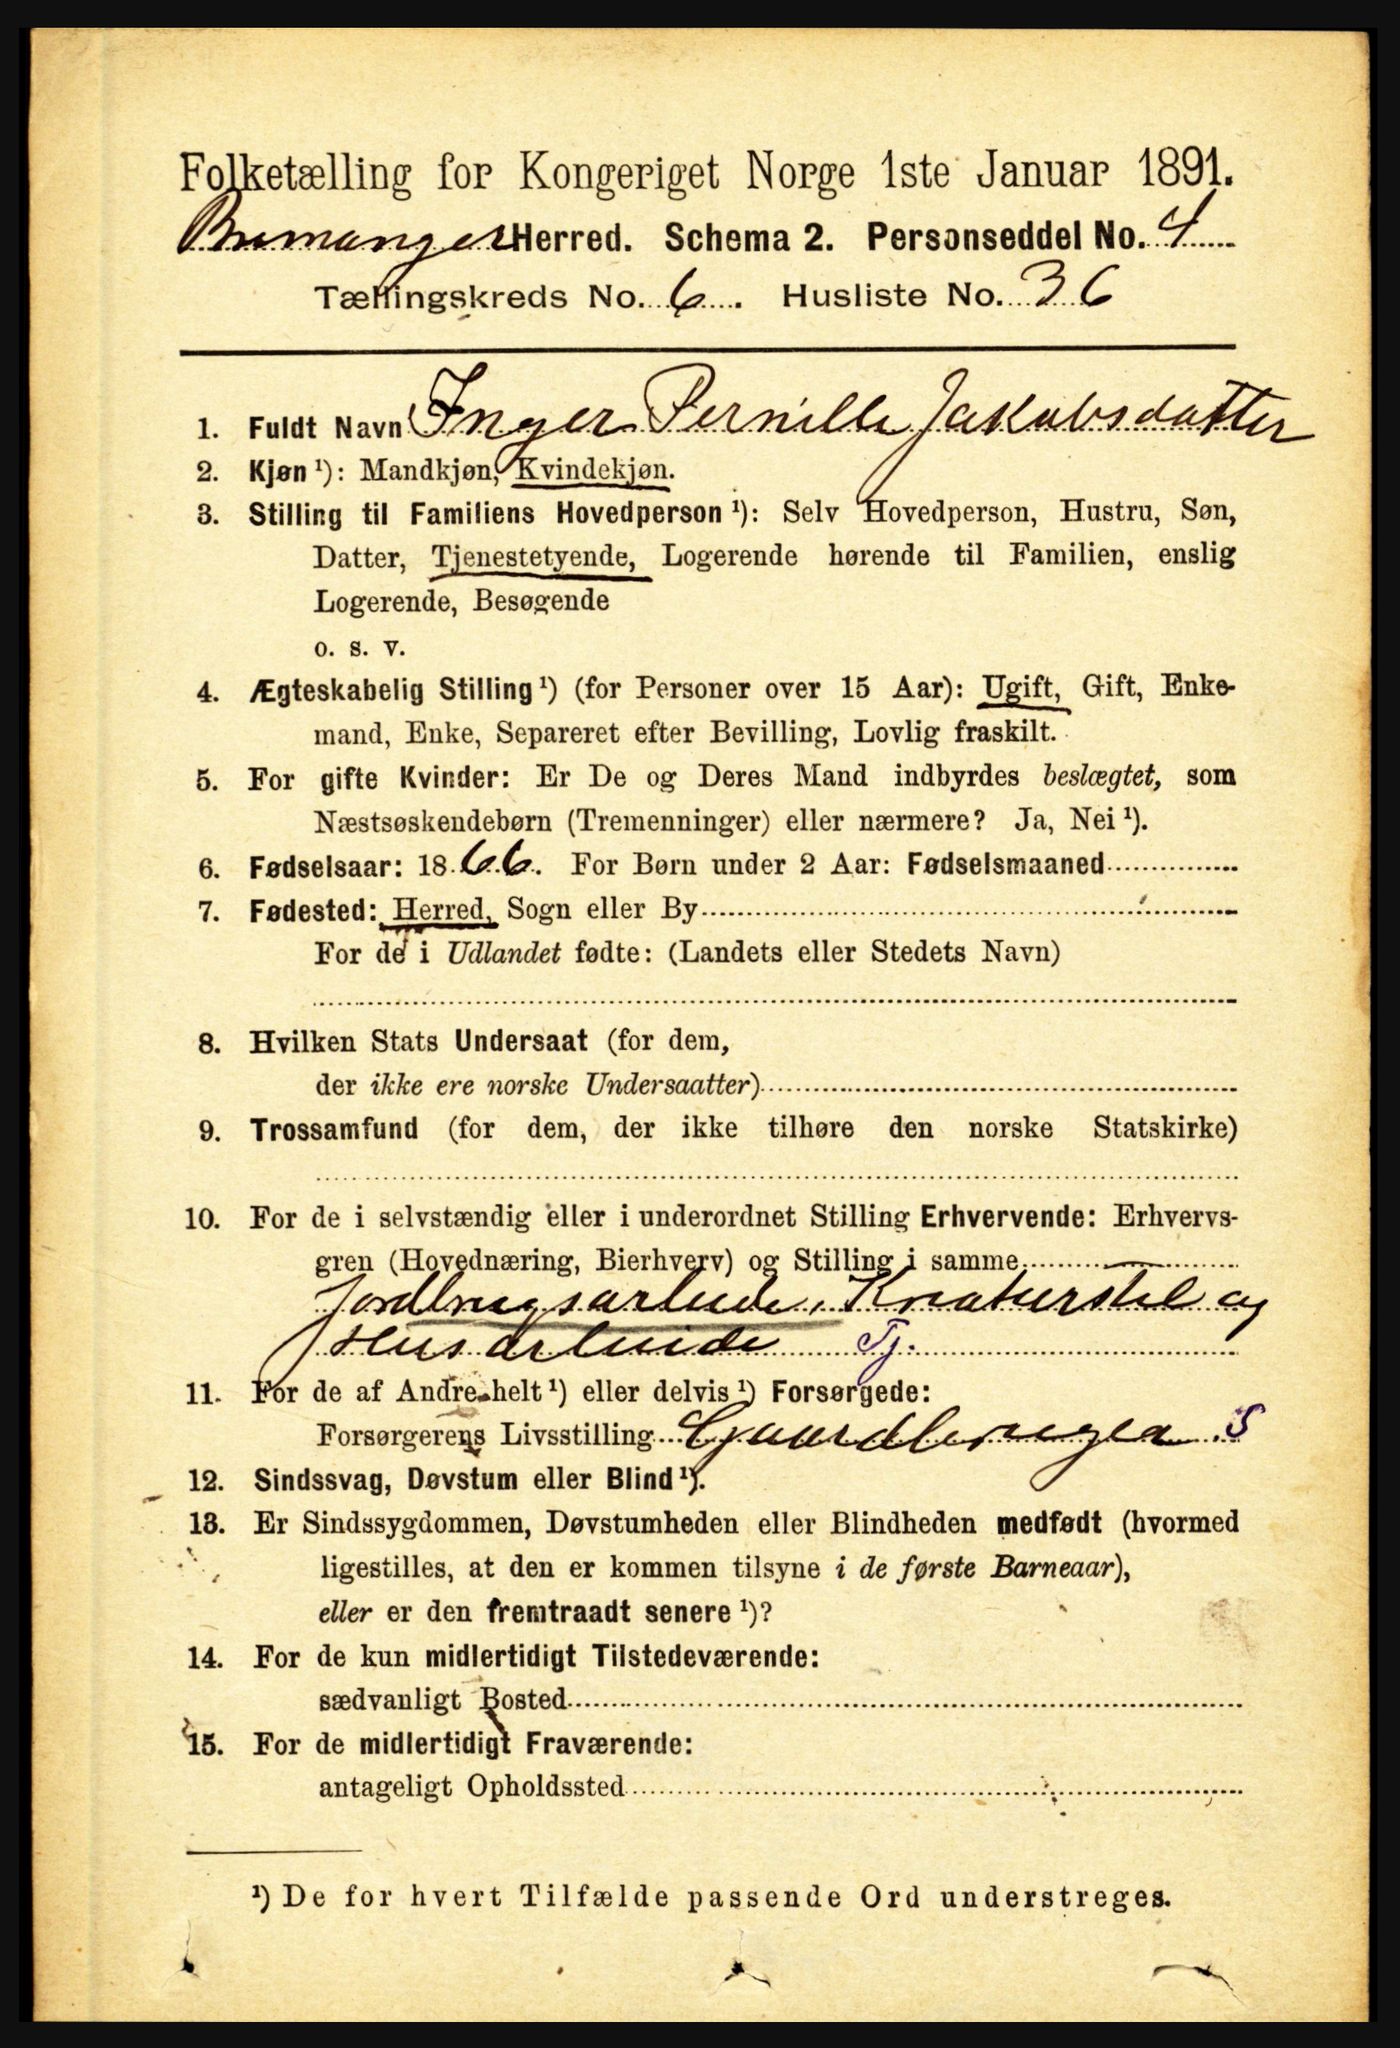 Folketælling for Kongeriget Norge 1ste Januar 1891.
Bremanger Herred. Schema 2. Personseddel No. 4
Tællingskreds No. 6. Husliste No. 36
1. Fuldt Navn Inger Pernille Jakobsdatter
2. Kjøn ¹): Mandkjøn, Kvindekjøn.
3. Stilling til Familiens Hovedperson ¹): Selv Hovedperson, Hustru, Søn,
Datter, Tjenestetyende, Logerende hørende til Familien, enslig
Logerende, Besøgende
o. s. v.
4. Ægteskabelig Stilling ¹) (for Personer over 15 Aar): Ugift, Gift, Enke-
mand, Enke, Separeret efter Bevilling, Lovlig fraskilt.
5. For gifte Kvinder: Er De og Deres Mand indbyrdes beslægtet, som
Næstsøskendebørn (Tremenninger) eller nærmere? Ja, Nei ¹).
6. Fødselsaar: 1866. For Børn under 2 Aar: Fødselsmaaned
7. Fødested: Herred, Sogn eller By
For de i Udlandet fødte: (Landets eller Stedets Navn)
8. Hvilken Stats Undersaat (for dem,
der ikke ere norske Undersaatter)
9. Trossamfund (for dem, der ikke tilhøre den norske Statskirke)
10. For de i selvstændig eller i underordnet Stilling Erhvervende: Erhvervs-
gren (Hovednæring, Bierhverv) og Stilling i samme
Jordbrugsarbeide, Kreaturstel og
Husarbeide Tj.
11. For de af Andre helt ¹) eller delvis ¹) Forsørgede:
Forsørgerens Livsstilling Gaardbruger S
12. Sindssvag, Døvstum eller Blind ¹).
13. Er Sindssygdommen, Døvstumheden eller Blindheden medfødt (hvormed
ligestilles, at den er kommen tilsyne i de første Barneaar),
eller er den fremtraadt senere ¹)?
14. For de kun midlertidigt Tilstedeværende:
sædvanligt Bosted
15. For de midlertidigt Fraværende:
antageligt Opholdssted
¹) De for hvert Tilfælde passende Ord understreges.